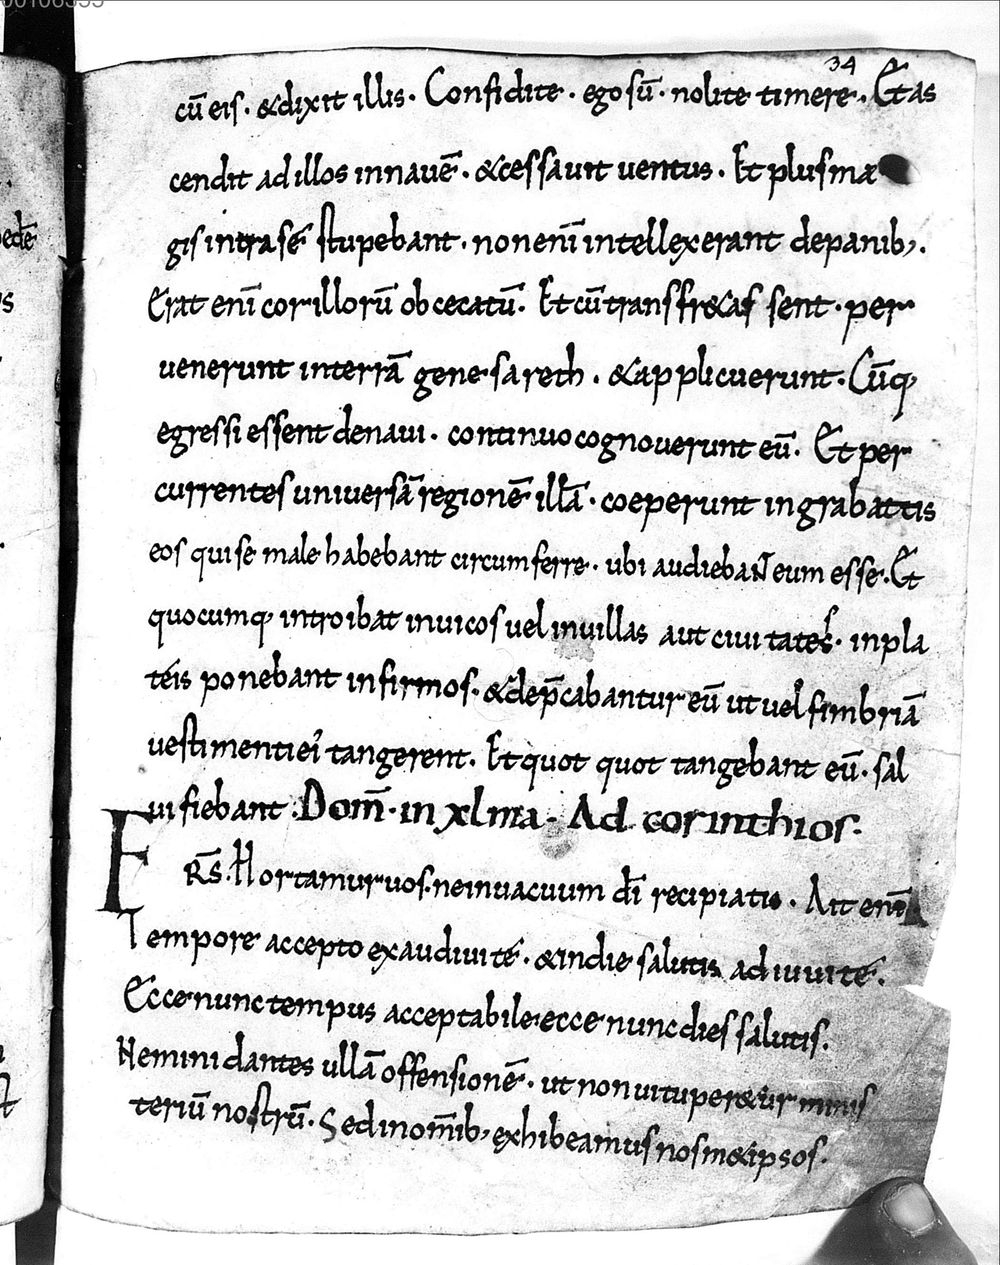 00106355
34
cū eis. &dixit illis. Confidite. ego sū. nolite timere. Et as
cendit ad illos in nauē. & cessauit uentus. Et plus ma
gis intra sé stupebant. non enī intellexerant de panib;.
Erat enī cor illorū obcecatū. Et cū transfr&assent. per
uenerunt in terrā genesareth. & applicuerunt. Cūq;
egressi essent de naui. continuo cognouerunt eū. Et per
currentes uniuersā regionē illā. coeperunt in grabattis
eos qui se male habebant circumferre. ubi audiebant eum esse. Et
quocumq; introibat in uicos uel in uillas aut ciuitates. in pla
téis ponebant infirmos. & dep̄cabantur eū ut uel fimbriā
uestimenti ei' tangerent. Et quot quot tangebant eū. sal
ui fiebant. Dom̄. in xlma. Ad corinthios.
FRS̄. Hortamur uos. ne in uacuum dī recipiatis. Ait enī
Tempore accepto exaudiui té. & in die salutis adiuui té.
Ecce nunc tempus acceptabile ecce nunc dies salutis.
Nemini dantes ullā offensionē. ut non uituper&ur minis
teriū nostrū. Sed in om̄ib; exhibeamus nosm&ipsos.